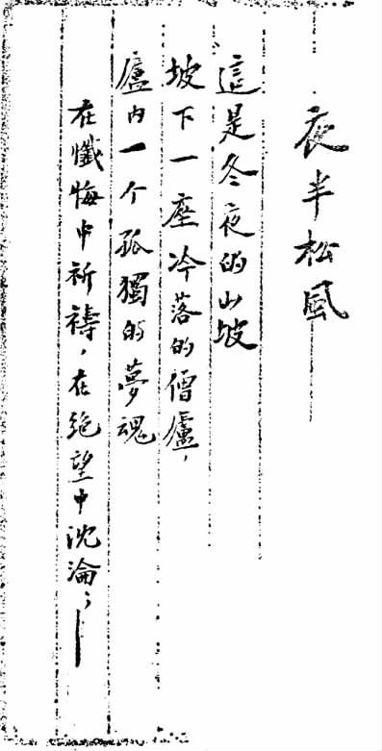 夜半松風
這是冬夜的山坡
坡下一座冷落的僧廬，
廬内一个孤獨的夢魂
在懺悔中祈禱，在絶望中沈淪；—